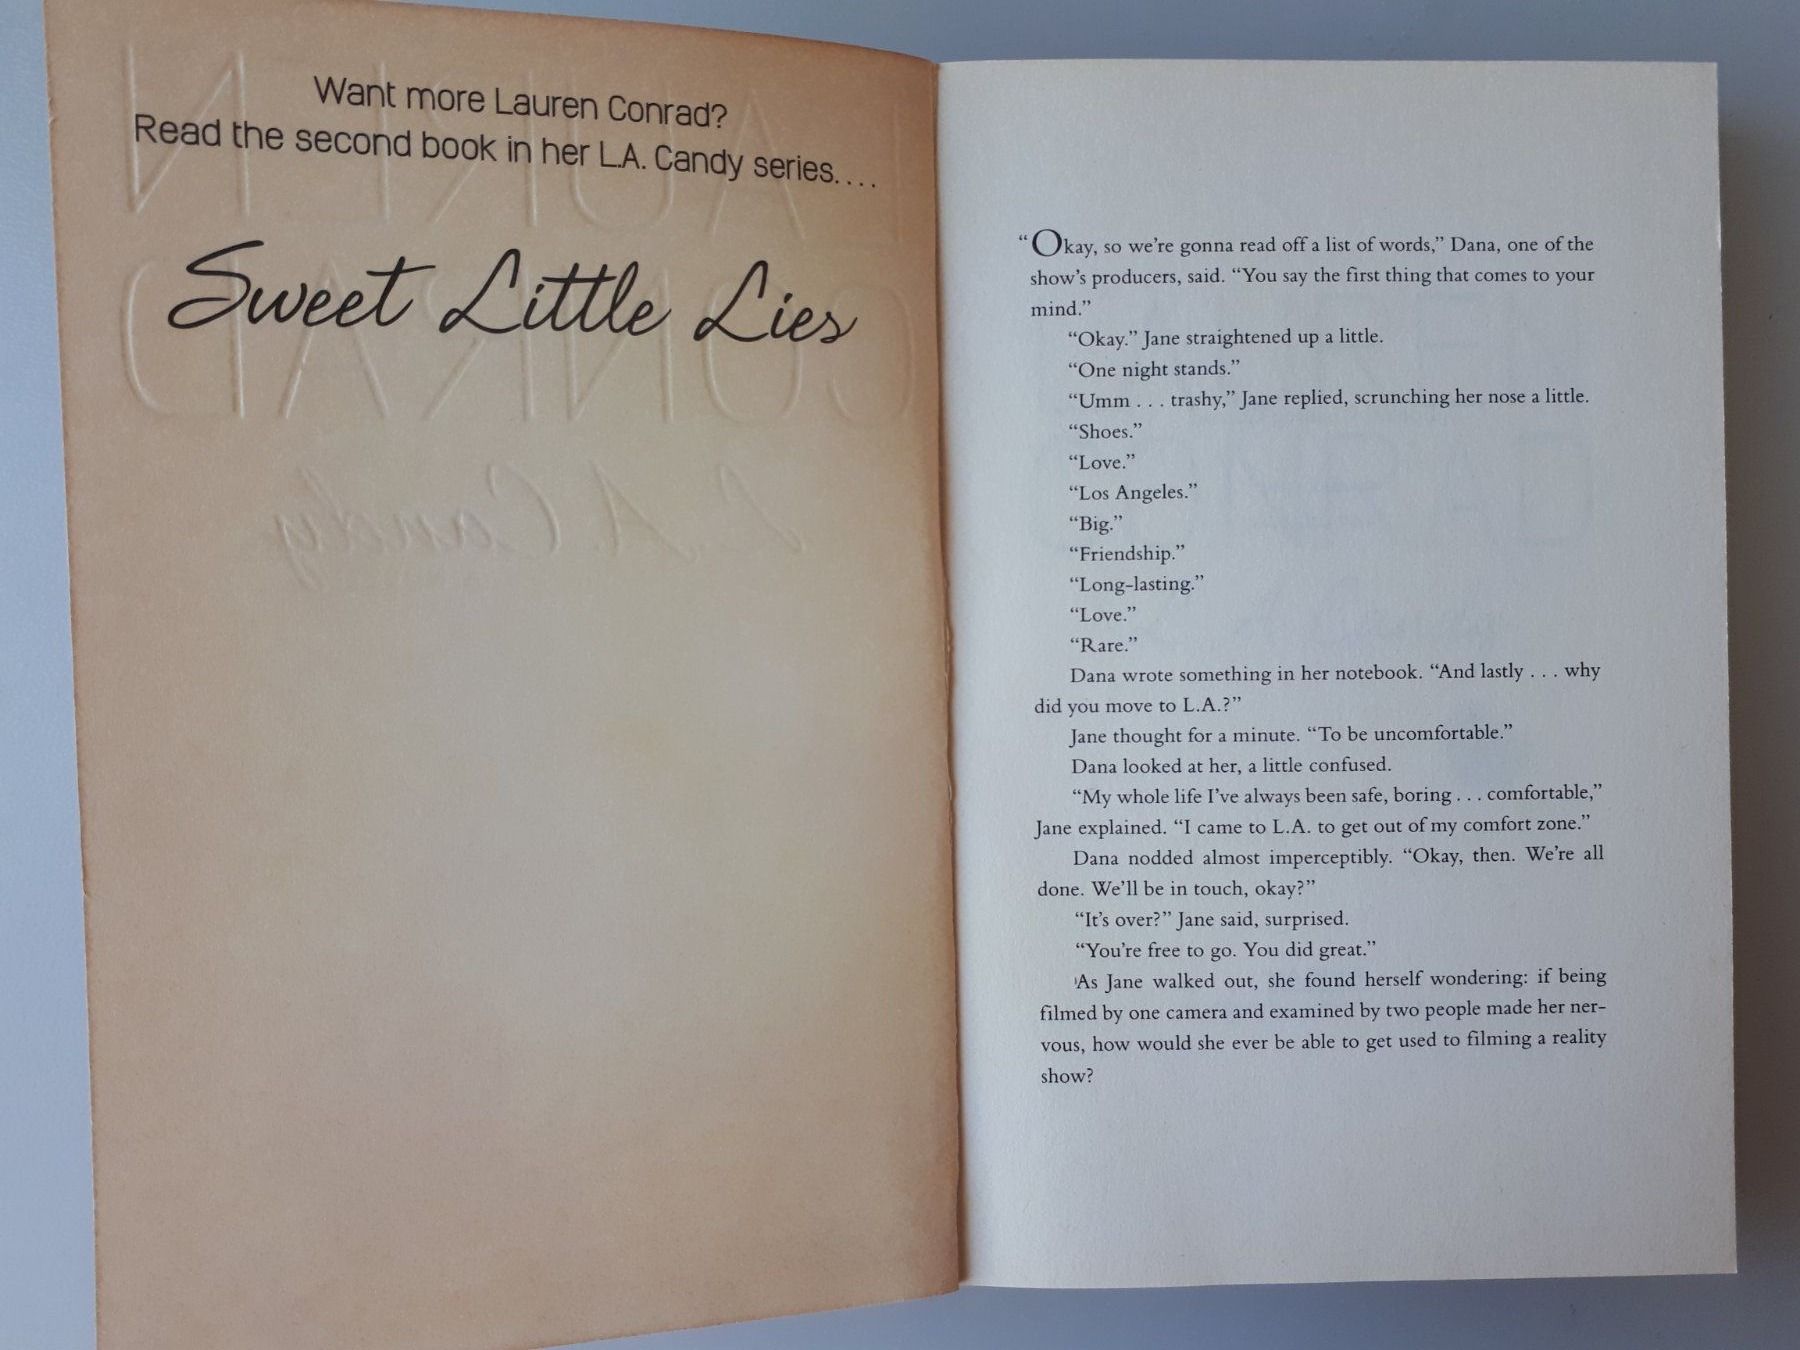 Want more Lauren Conrad?
Read the second book in her L.A. Candy series. . . .
Sweet Little Lies
LAUREN
CONRAD
L.A. Candy
“Okay, so we’re gonna read off a list of words,” Dana, one of the
show’s producers, said. “You say the first thing that comes to your
mind.”
“Okay.” Jane straightened up a little.
“One night stands.”
“Umm . . . trashy,” Jane replied, scrunching her nose a little.
“Shoes.”
“Love.”
“Los Angeles.”
“Big.”
“Friendship.”
“Long-lasting.”
“Love.”
“Rare.”
Dana wrote something in her notebook. “And lastly . . . why
did you move to L.A.?”
Jane thought for a minute. “To be uncomfortable.”
Dana looked at her, a little confused.
“My whole life I’ve always been safe, boring . . . comfortable,”
Jane explained. “I came to L.A. to get out of my comfort zone.”
Dana nodded almost imperceptibly. “Okay, then. We’re all
done. We’ll be in touch, okay?”
“It’s over?” Jane said, surprised.
“You’re free to go. You did great.”
As Jane walked out, she found herself wondering: if being
filmed by one camera and examined by two people made her ner-
vous, how would she ever be able to get used to filming a reality
show?